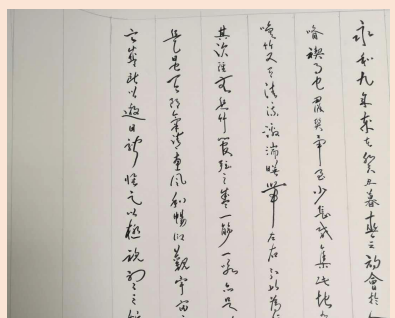 永和九年歲在癸丑暮春之初會於
禊事也群賢畢至少長咸集此地
竹又有清流激湍映帶左右引以為
其次雖無絲竹管弦之盛一觴一詠亦足
是日也天朗氣清惠風和暢仰觀宇宙
所以遊目騁懷足以極視聽之